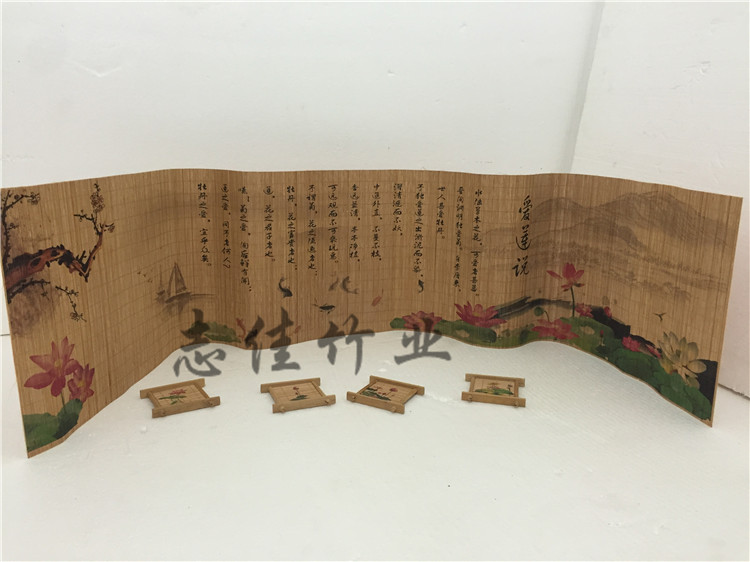 爱莲说
水陆草木之花，可爱者甚蕃。
晋陶渊明独爱菊。自李唐来，
世人甚爱牡丹。
予独爱莲之出淤泥而不染，
濯清涟而不妖。
中通外直。不蔓不枝。
香远益清，亭亭净植。
可远观而不可亵玩焉。
予谓菊，花之隐逸者也；
牡丹，花之富贵者也；
莲，花之君子者也。
噫！菊之爱，陶后鲜有闻；
莲之爱，同予者何人？
牡丹之爱，宜乎众矣。
志佳竹业